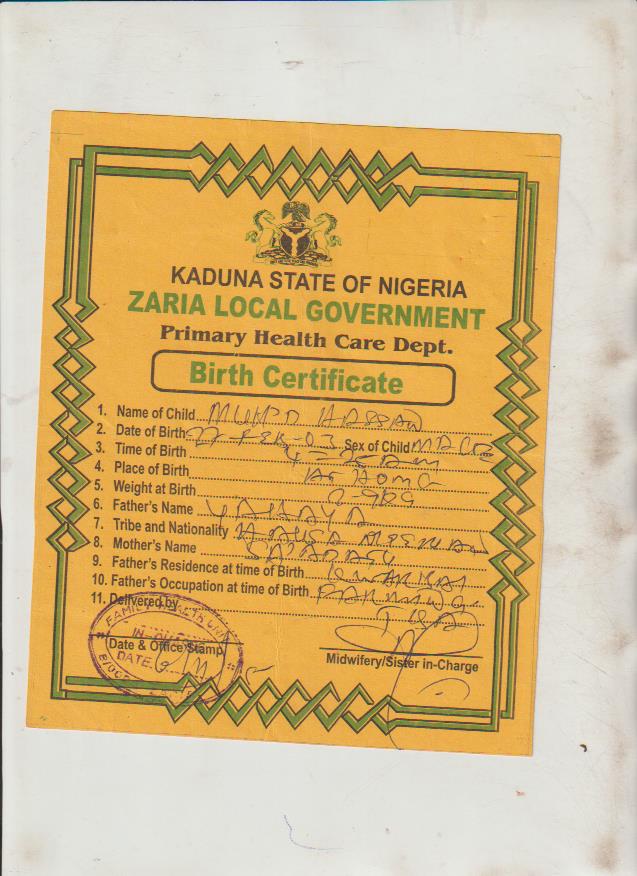 KADUNA STATE OF NIGERIA
ZARIA LOCAL GOVERNMENT
Primary Health Care Dept.
Birth Certificate
1. Name of Child MUHD HASSAN
2. Date of Birth 27-FEB-03 Sex of Child MALE
3. Time of Birth
4. Place of Birth At Home
5. Weight at Birth
6. Father's Name YAHAYA
7. Tribe and Nationality HAUSA
8. Mother's Name
9. Father's Residence at time of Birth
10. Father's Occupation at time of Birth FARMING
11. Delivered by
Date & Office Stamp
DATE
Midwifery/Sister in-Charge